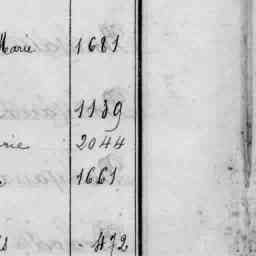 Marie 1681
1139
rie 2044
1661
472